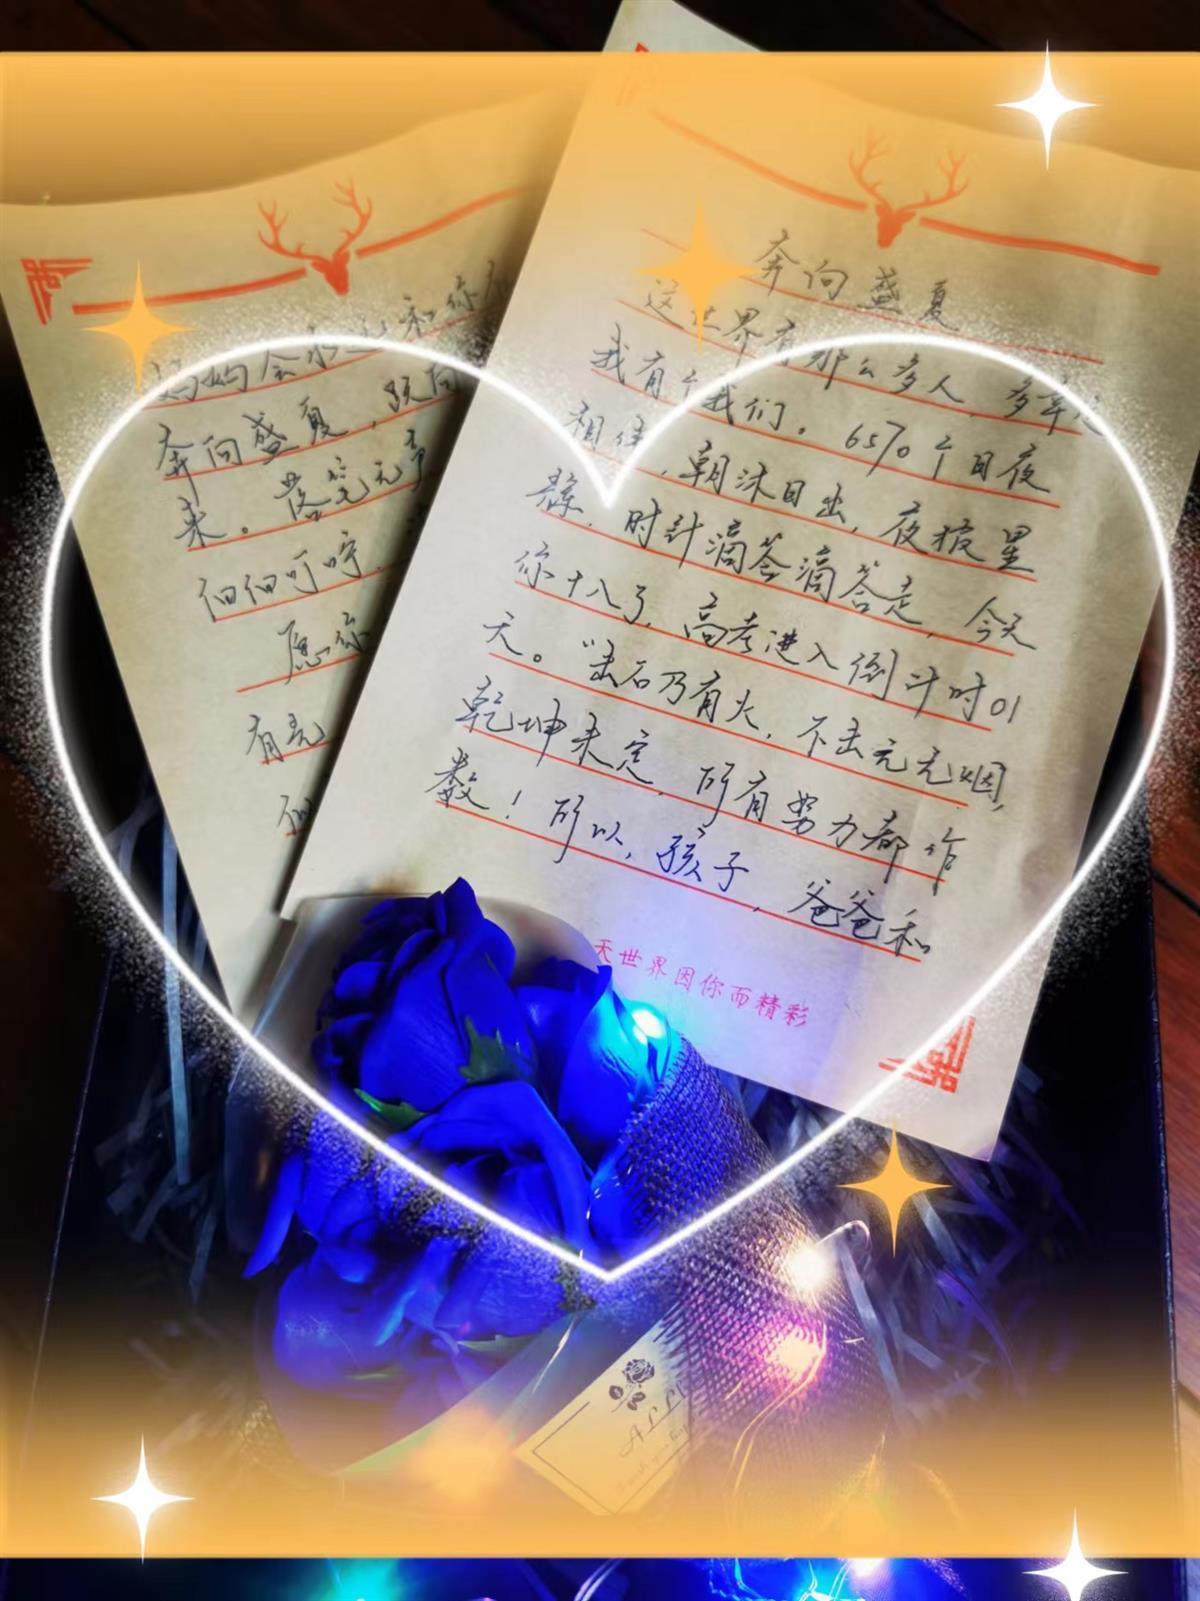 奔向盛夏
这世界有那么多人,多幸运
我有个我们。6570个日夜
相伴,朝沐日出,夜披星
辉,时针滴答滴答走,今天
你十八了,高考进入倒计时01
天。"击石乃有火,不击元无烟,
乾坤未定,所有努力都作
数!所以,孩子,爸爸和
天世界因你而精彩
妈妈会永远和你
奔向盛夏,既
来。落笔元
但但叮咛
愿你
有无